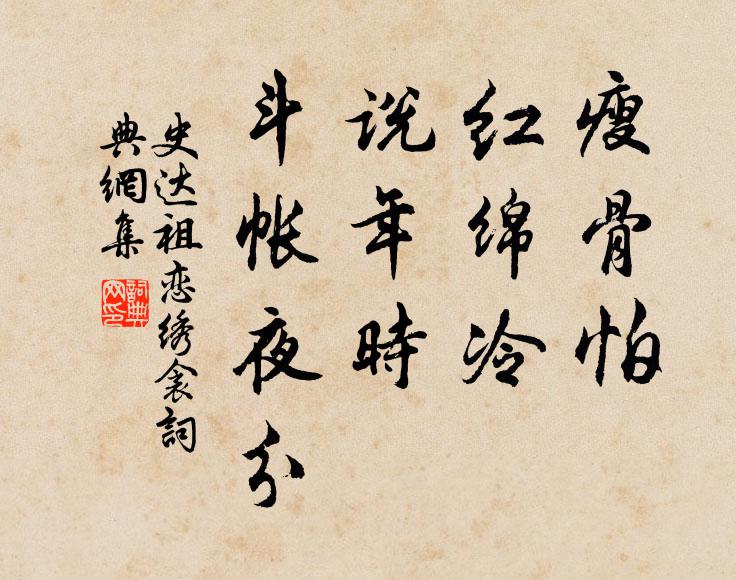 瘦骨怕
红绵冷
说年時
斗帐夜分
史达祖恋绣衾詞
典網集
詞典
网印